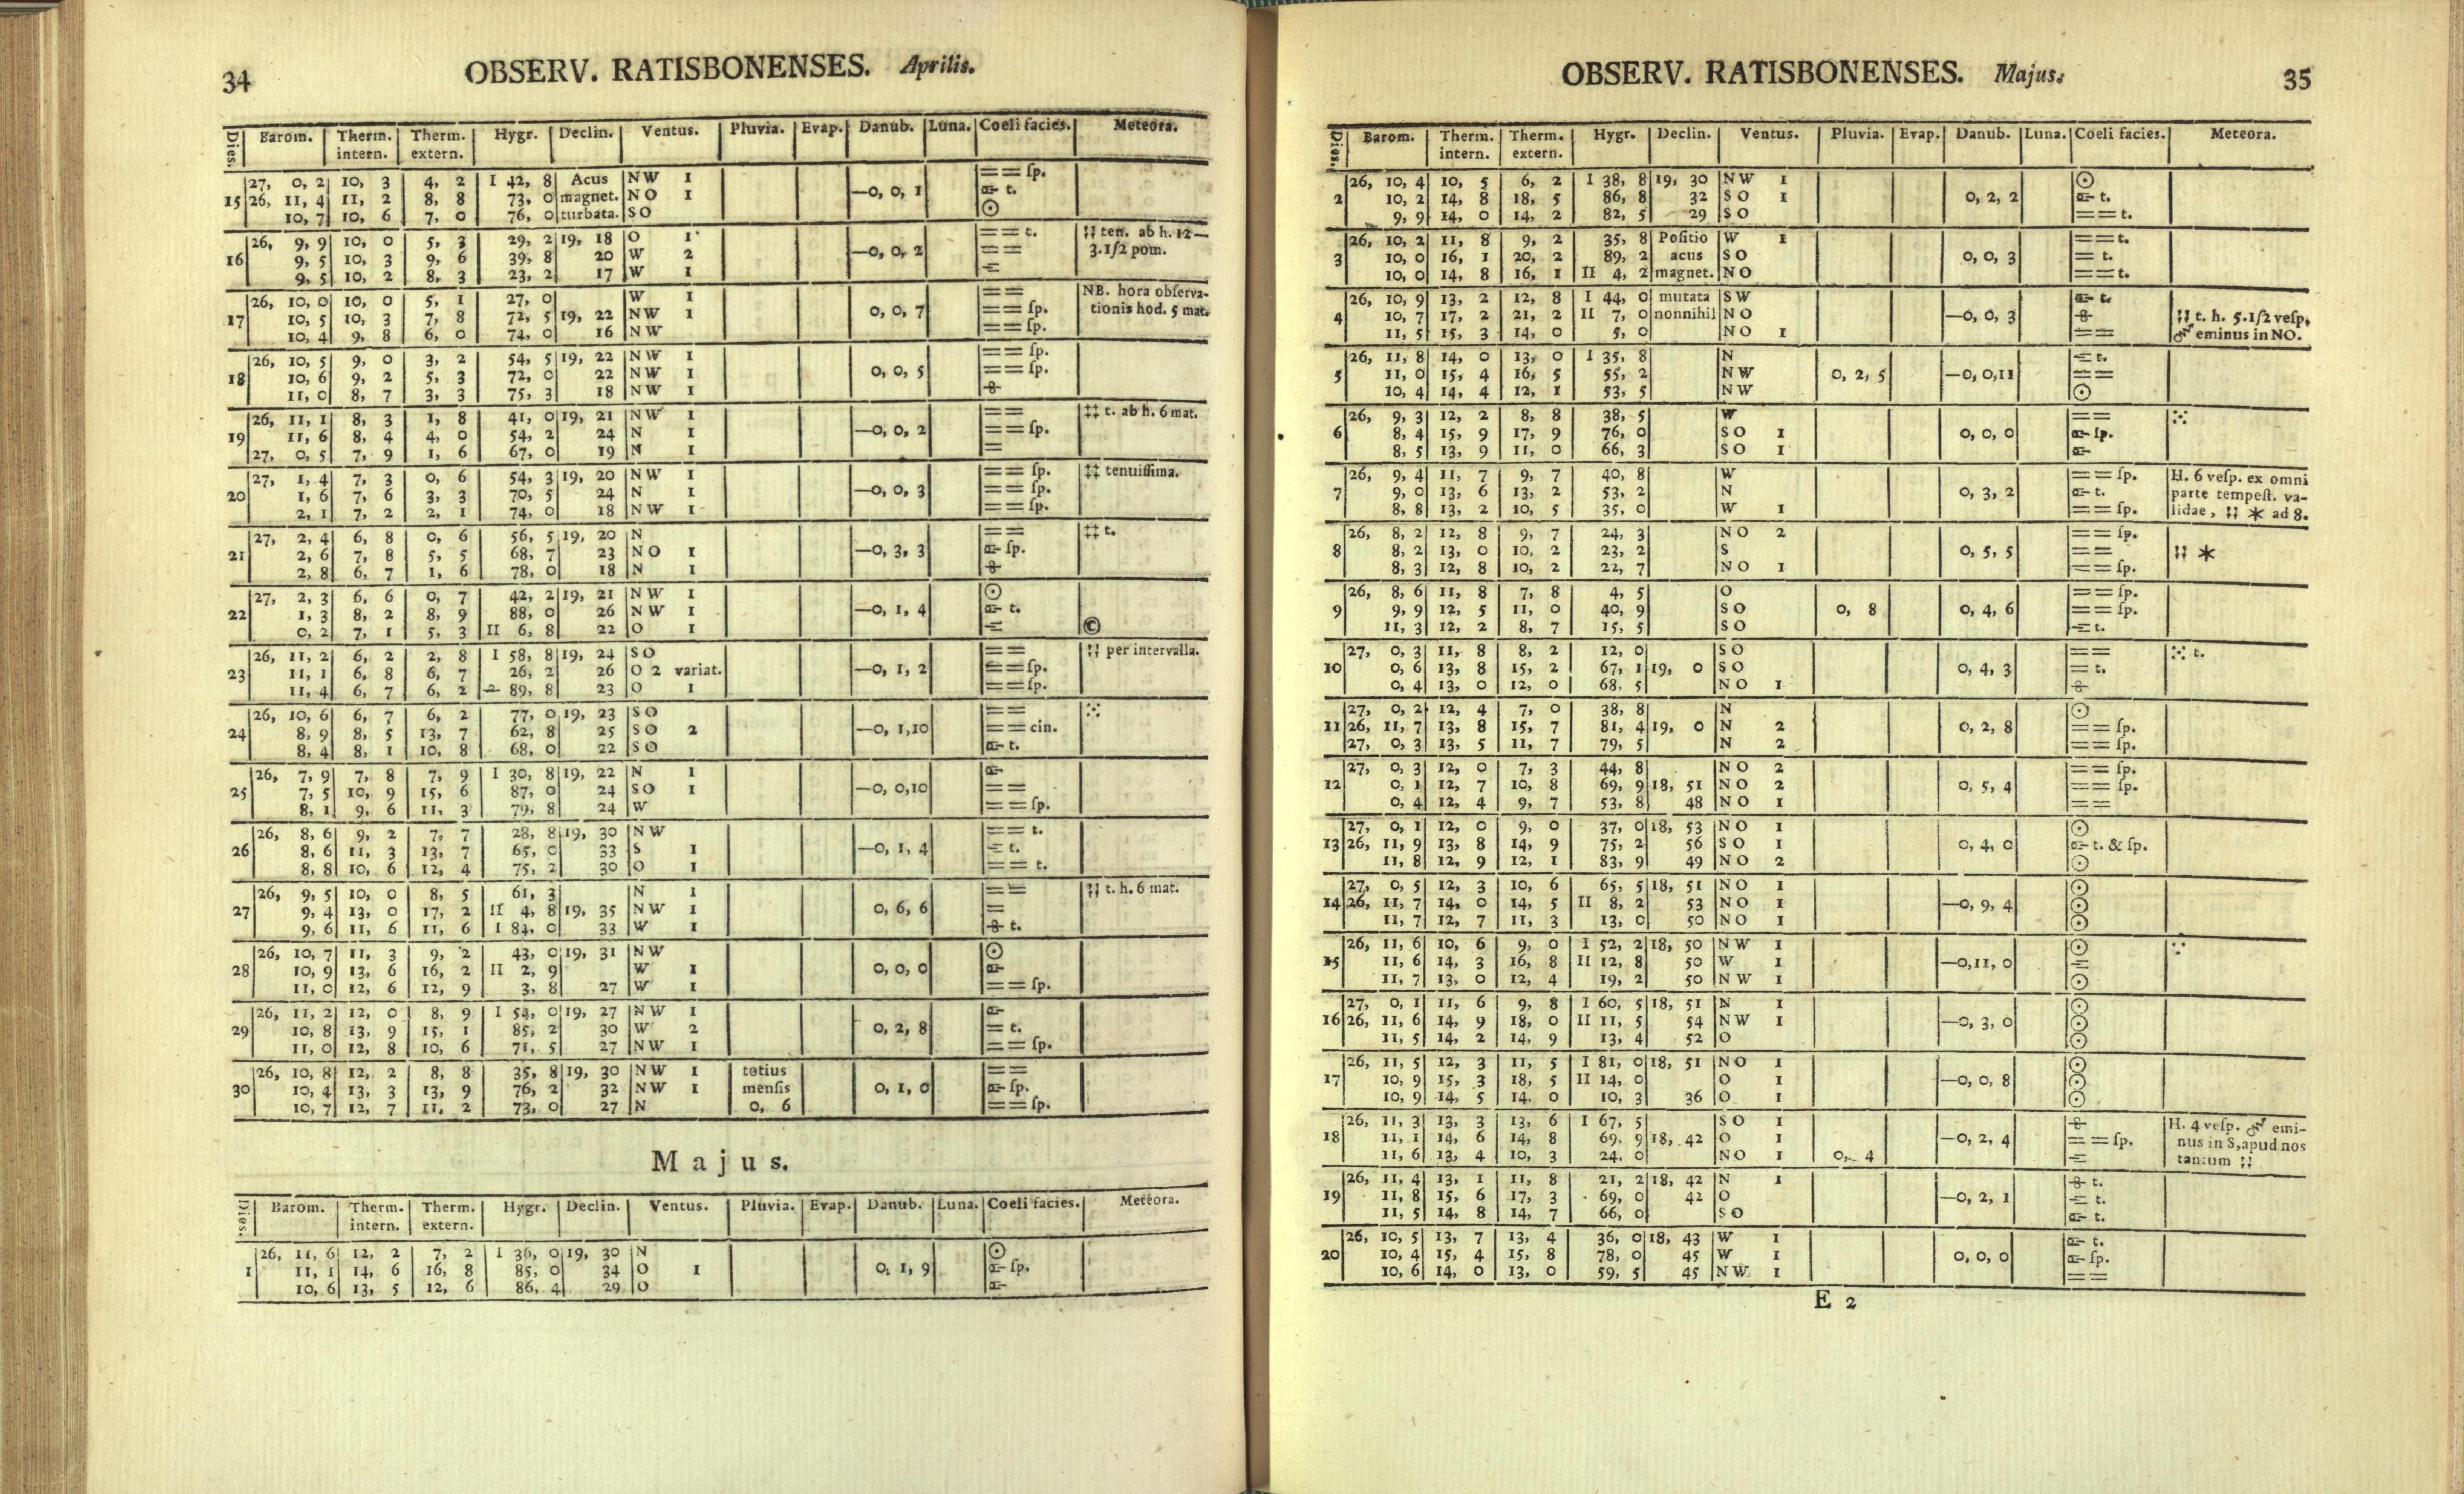 34
OBSERV. RATISBONENSES. Aprilis.
Dies. | Barom. | Therm. intern. | Therm. extern. | Hygr. | Declin. | Ventus. | Pluvia. | Evap. | Danub. | Luna. | Coeli facies. | Meteora.
27, 0, 2 10, 3 4, 2 I 42, 8 Acus NW 1 == ſp.
15 26, 11, 4 11, 2 8, 8 73, 0 magnet. NO 1 —0, 0, 1 t.
10, 7 10, 6 7, 0 76, 0 turbata. SO ☉
26, 9, 9 10, 0 5, 3 29, 2 19, 18 O 1 == t. ten. ab h. 12—
16 9, 5 10, 3 9, 6 39, 8 20 W 2 —0, 0, 2 == 3.1/2 pom.
9, 5 10, 2 8, 3 23, 2 17 W 1
26, 10, 0 10, 0 5, 1 27, 0 W 1 == NB. hora obſerva-
17 10, 5 10, 3 7, 8 72, 5 19, 22 NW 1 0, 0, 7 == ſp. tionis hod. 5 mat.
10, 4 9, 8 6, 0 74, 0 16 NW == ſp.
26, 10, 5 9, 0 3, 2 54, 5 19, 22 NW 1 == ſp.
18 10, 6 9, 2 5, 3 72, 0 22 NW 1 0, 0, 5 == ſp.
11, 0 8, 7 3, 3 75, 3 18 NW 1
26, 11, 1 8, 3 1, 8 41, 0 19, 21 NW 1 == ‡‡ t. ab h. 6 mat.
19 11, 6 8, 4 4, 0 54, 2 24 N 1 —0, 0, 2 == ſp.
27, 0, 5 7, 9 1, 6 67, 0 19 N 1 =
27, 1, 4 7, 3 0, 6 54, 3 19, 20 NW 1 == ſp. ‡‡ tenuiſſima.
20 1, 6 7, 6 3, 3 70, 5 24 N 1 —0, 0, 3 == ſp.
2, 1 7, 2 2, 1 74, 0 18 NW 1 == ſp.
27, 2, 4 6, 8 0, 6 56, 5 19, 20 N == ‡‡ t.
21 2, 6 7, 8 5, 5 68, 7 23 NO 1 —0, 3, 3 ſp.
2, 8 6, 7 1, 6 78, 0 18 N 1
27, 2, 3 6, 6 0, 7 42, 2 19, 21 NW 1 ☉
22 1, 3 8, 2 8, 9 88, 0 26 NW 1 —0, 1, 4 t.
0, 2 7, 1 5, 3 II 6, 8 22 O 1 ©
26, 11, 2 6, 2 2, 8 I 58, 8 19, 24 SO == per intervalla.
23 11, 1 6, 8 6, 7 26, 2 26 O 2 variat. —0, 1, 2 == ſp.
11, 4 6, 7 6, 2 89, 8 23 O 1 == ſp.
26, 10, 6 6, 7 6, 2 77, 0 19, 23 SO ==
24 8, 9 8, 5 13, 7 62, 8 25 SO 2 —0, 1,10 == cin.
8, 4 8, 1 10, 8 68, 0 22 SO t.
26, 7, 9 7, 8 7, 9 I 30, 8 19, 22 N 1
25 7, 5 10, 9 15, 6 87, 0 24 SO 1 —0, 0,10 ==
8, 1 9, 6 11, 3 79, 8 24 W == ſp.
26, 8, 6 9, 2 7, 7 28, 8 19, 30 NW == t.
26 8, 6 11, 3 13, 7 65, 0 33 S 1 —0, 1, 4 t.
8, 8 10, 6 12, 4 75, 2 30 O 1 == t.
26, 9, 5 10, 0 8, 5 61, 3 N 1 == t. h. 6 mat.
27 9, 4 13, 0 17, 2 II 4, 8 19, 35 NW 1 0, 6, 6 =
9, 6 11, 6 11, 6 I 84, 0 33 W 1 t.
26, 10, 7 11, 3 9, 2 43, 0 19, 31 NW ☉
28 10, 9 13, 6 16, 2 II 2, 9 W 1 0, 0, 0
11, 0 12, 6 12, 9 3, 8 27 W 1 == ſp.
26, 11, 2 12, 0 8, 9 I 54, 0 19, 27 NW 1
29 10, 8 13, 9 15, 1 85, 2 30 W 2 0, 2, 8 = t.
11, 0 12, 8 10, 6 71, 5 27 NW 1 == ſp.
26, 10, 8 12, 2 8, 8 35, 8 19, 30 NW 1 totius ==
30 10, 4 13, 3 13, 9 76, 2 32 NW 1 menſis 0, 1, 0 ſp.
10, 7 12, 7 11, 2 73, 0 27 N 0, 6 == ſp.
Majus.
Dies. | Barom. | Therm. intern. | Therm. extern. | Hygr. | Declin. | Ventus. | Pluvia. | Evap. | Danub. | Luna. | Coeli facies. | Meteora.
26, 11, 6 12, 2 7, 2 I 36, 0 19, 30 N ☉
1 11, 1 14, 6 16, 8 85, 0 34 O 1 0, 1, 9 ſp.
10, 6 13, 5 12, 6 86, 4 29 O
OBSERV. RATISBONENSES. Majus.
35
Dies. | Barom. | Therm. intern. | Therm. extern. | Hygr. | Declin. | Ventus. | Pluvia. | Evap. | Danub. | Luna. | Coeli facies. | Meteora.
26, 10, 4 10, 5 6, 2 I 38, 8 19, 30 NW 1 ☉
2 10, 2 14, 8 18, 5 86, 8 32 SO 1 0, 2, 2 t.
9, 9 14, 0 14, 2 82, 5 29 SO == t.
26, 10, 2 11, 8 9, 2 35, 8 Poſitio W 1 == t.
3 10, 0 16, 1 20, 2 89, 2 acus SO 0, 0, 3 = t.
10, 0 14, 8 16, 1 II 4, 2 magnet. NO == t.
26, 10, 9 13, 2 12, 8 I 44, 0 mutata SW t.
4 10, 7 17, 2 21, 2 II 7, 0 nonnihil NO —0, 0, 3 t. h. 5.1/2 veſp.
11, 5 15, 3 14, 0 5, 0 NO 1 == eminus in NO.
26, 11, 8 14, 0 13, 0 I 35, 8 N t.
5 11, 0 15, 4 16, 5 55, 2 NW 0, 2, 5 —0, 0,11 ==
10, 4 14, 4 12, 1 53, 5 NW ☉
26, 9, 3 12, 2 8, 8 38, 5 W ==
6 8, 4 15, 9 17, 9 76, 0 SO 1 0, 0, 0 ſp.
8, 5 13, 9 11, 0 66, 3 SO 1
26, 9, 4 11, 7 9, 7 40, 8 W == ſp. H. 6 veſp. ex omni
7 9, 0 13, 6 13, 2 53, 2 N 0, 3, 2 t. parte tempeſt. va-
8, 8 13, 2 10, 5 35, 0 W 1 == ſp. lidae, ad 8.
26, 8, 2 12, 8 9, 7 24, 3 NO 2 == ſp.
8 8, 2 13, 0 10, 2 23, 2 S 0, 5, 5 ==
8, 3 12, 8 10, 2 22, 7 NO 1 == ſp.
26, 8, 6 11, 8 7, 8 4, 5 O == ſp.
9 9, 9 12, 5 11, 0 40, 9 SO 0, 8 0, 4, 6 == ſp.
11, 3 12, 2 8, 7 15, 5 SO t.
27, 0, 3 11, 8 8, 2 12, 0 SO == t.
10 0, 6 13, 8 15, 2 67, 1 19, 0 SO 0, 4, 3 = t.
0, 4 13, 0 12, 0 68, 5 NO 1
27, 0, 2 12, 4 7, 0 38, 8 N ☉
11 26, 11, 7 13, 8 15, 7 81, 4 19, 0 N 2 0, 2, 8 == ſp.
27, 0, 3 13, 5 11, 7 79, 5 N 2 == ſp.
27, 0, 3 12, 0 7, 3 44, 8 NO 2 == ſp.
12 0, 1 12, 7 10, 8 69, 9 18, 51 NO 2 0, 5, 4 == ſp.
0, 4 12, 4 9, 7 53, 8 48 NO 1 ==
27, 0, 1 12, 0 9, 0 37, 0 18, 53 NO 1 ☉
13 26, 11, 9 13, 8 14, 9 75, 2 56 SO 1 0, 4, 0 t. & ſp.
11, 8 12, 9 12, 1 83, 9 49 NO 2 ☉
27, 0, 5 12, 3 10, 6 65, 5 18, 51 NO 1 ☉
14 26, 11, 7 14, 0 14, 5 II 8, 2 53 NO 1 —0, 9, 4 ☉
11, 7 12, 7 11, 3 13, 0 50 NO 1 ☉
26, 11, 6 10, 6 9, 0 I 52, 2 18, 50 NW 1 ☉
15 11, 6 14, 3 16, 8 II 12, 8 50 W 1 —0,11, 0
11, 7 13, 0 12, 4 19, 2 50 NW 1 ☉
27, 0, 1 11, 6 9, 8 I 60, 5 18, 51 N 1 ☉
16 26, 11, 6 14, 9 18, 0 II 11, 5 54 NW 1 —0, 3, 0 ☉
11, 5 14, 2 14, 9 13, 4 52 O ☉
26, 11, 5 12, 3 11, 5 I 81, 0 18, 51 NO 1 ☉
17 10, 9 15, 3 18, 5 II 14, 0 O 1 —0, 0, 8 ☉
10, 9 14, 5 14, 0 10, 3 36 O 1 ☉
26, 11, 3 13, 3 13, 6 I 67, 5 SO 1 H. 4 veſp. emi-
18 11, 1 14, 6 14, 8 69, 9 18, 42 O 1 —0, 2, 4 == ſp. nus in S, apud nos
11, 6 13, 4 10, 3 24, 0 NO 1 0, 4 tantum
26, 11, 4 13, 1 11, 8 21, 2 18, 42 N 1 t.
19 11, 8 15, 6 17, 3 69, 0 42 O —0, 2, 1 t.
11, 5 14, 8 14, 7 66, 0 SO t.
26, 10, 5 13, 7 13, 4 36, 0 18, 43 W 1 t.
20 10, 4 15, 4 15, 8 78, 0 45 W 1 0, 0, 0 ſp.
10, 6 14, 0 13, 0 59, 5 45 NW 1 ==
E 2